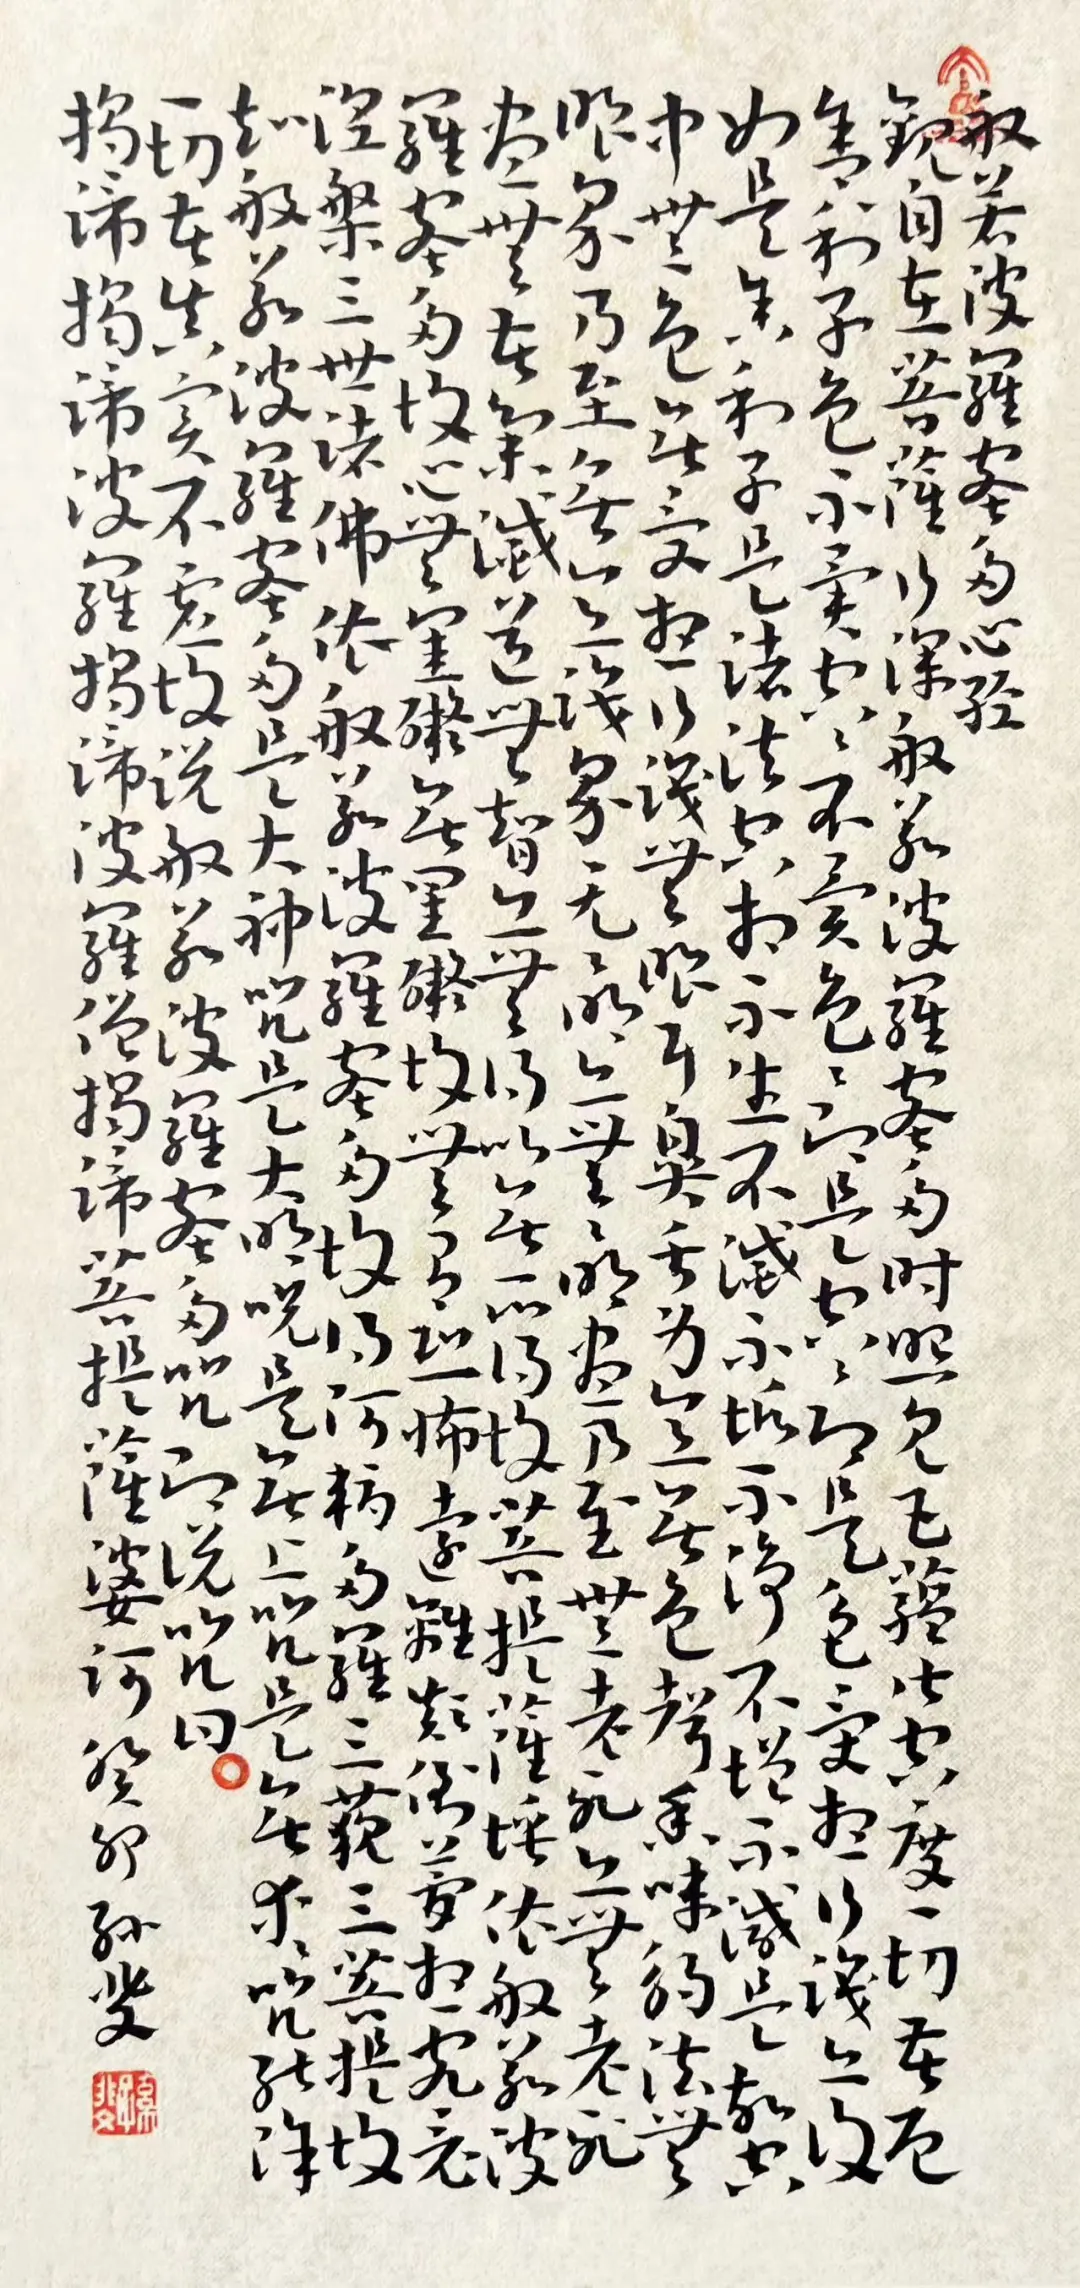 般若波羅蜜多心经
觀自在菩薩行深般若波羅蜜多時照见五蘊皆空度一切苦厄
舍利子色不異空空不異色色即是空空即是色受想行識亦復
如是舍利子是諸法空相不生不滅不垢不净不增不减是故空
中無色無受想行識無眼耳鼻舌身意無色聲香味觸法無
眼界乃至無意識界无無明亦無無明盡乃至無老死亦無老死
盡無苦集滅道無智亦無得以無所得故菩提薩埵依般若波
羅蜜多故心無罣礙無罣礙故無有恐怖遠離顛倒夢想究竟
涅槃三世诸佛依般若波羅蜜多故得阿耨多羅三藐三菩提故
知般若波羅蜜多是大神咒是大明咒是無上咒是無等等咒能除
一切苦真实不虚故说般若波羅蜜多咒即说咒曰
揭諦揭諦波羅揭諦波羅僧揭諦菩提薩婆訶 癸卯 孙斐